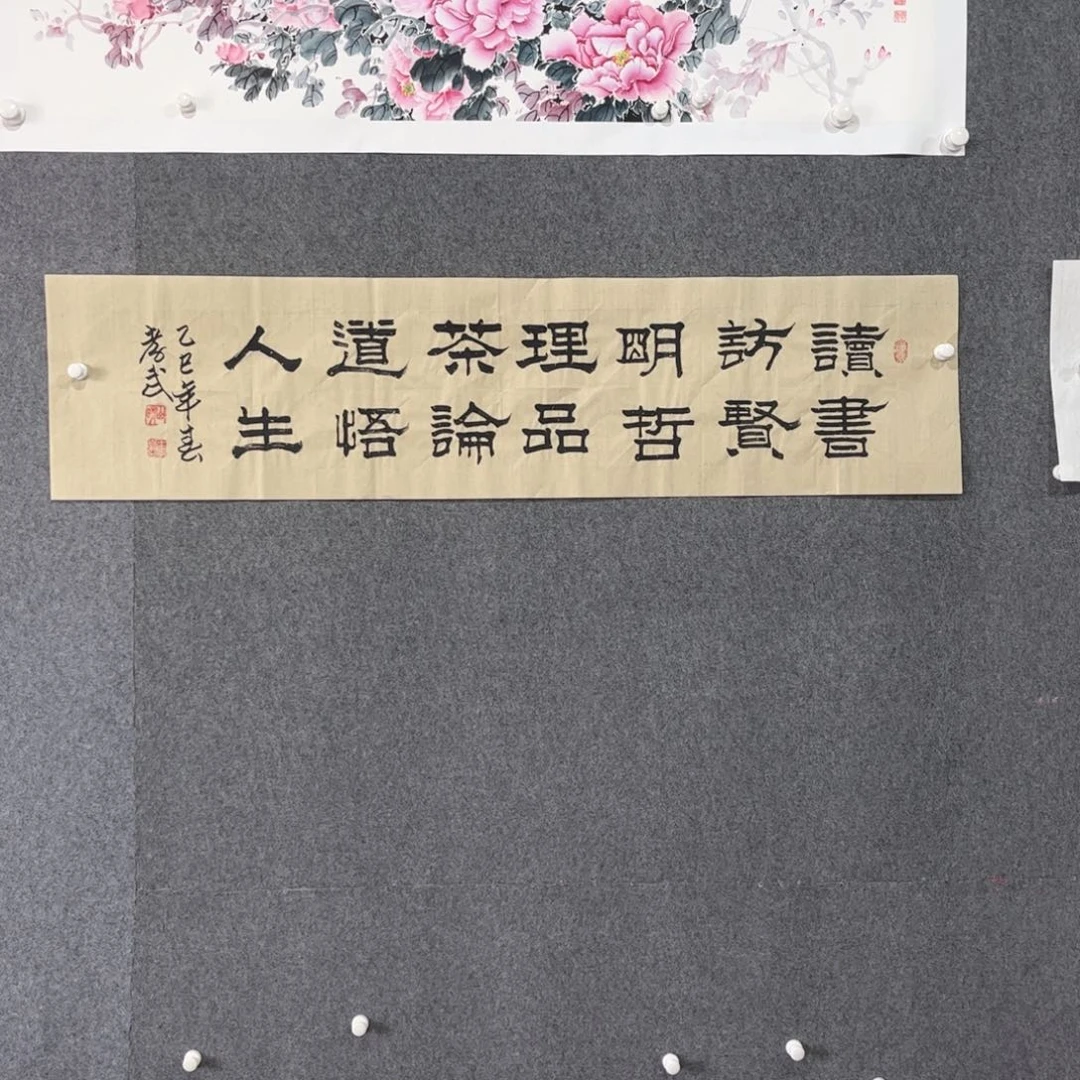 讀書
訪賢
明哲
理品
茶論
道悟
人生
乙巳年春